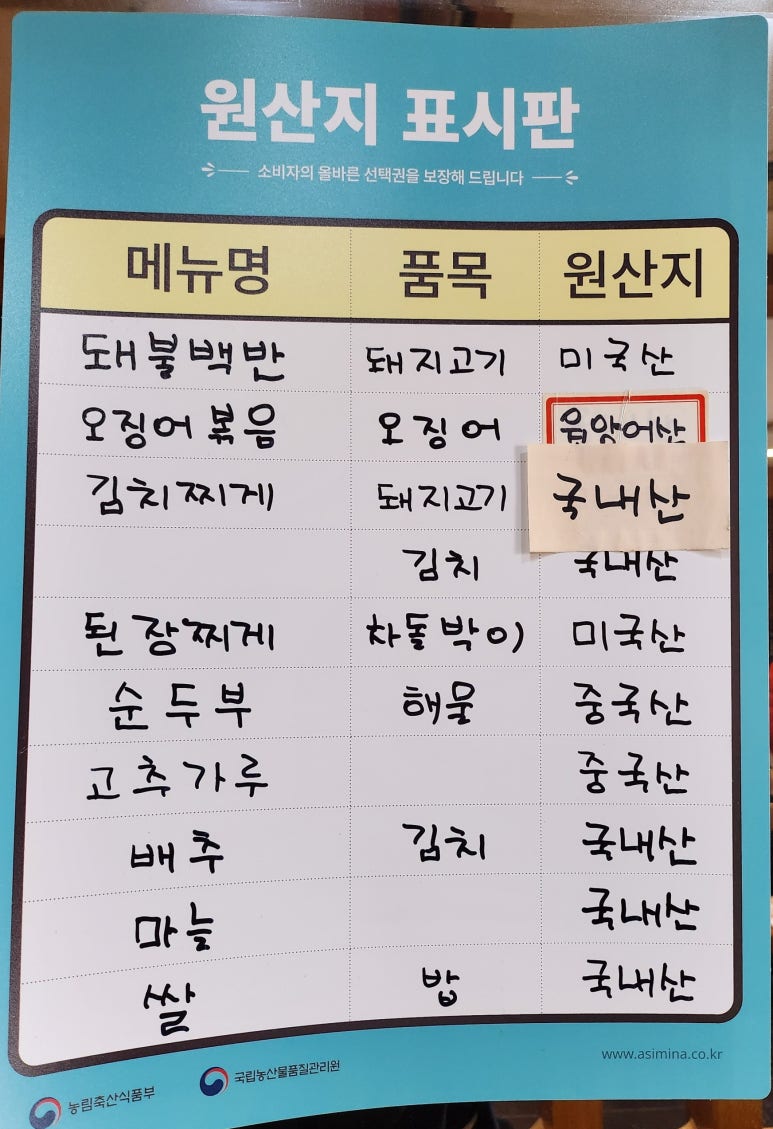 원산지 표시판
소비자의 올바른 선택권을 보장해 드립니다
메뉴명 품목 원산지
돼불백반 돼지고기 미국산
오징어볶음 오징어
김치찌게 돼지고기 국내산
김치 국내산
된장찌게 차돌박이 미국산
순두부 해물 중국산
고추가루 중국산
배추 김치 국내산
마늘 국내산
쌀 밥 국내산
www.asimina.co.kr
농림축산식품부 국립농산물품질관리원